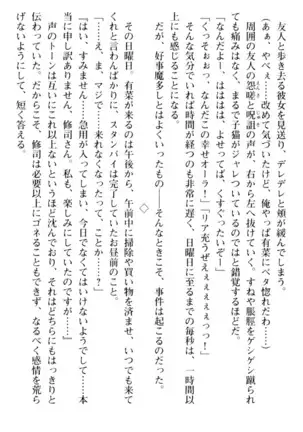 友人と歩き去る彼女を見送り、デレデレと頬が緩んでしまう。
「ああ、やべぇ……改めて気づいたけど、俺やっぱ有菜にベタ惚れだわ……」
周囲の友人の怨嗟と呪詛の声が、右から左へ抜けていく。すねや脹脛をゲシゲシ蹴られ
ても痛みはなく、まるで子猫がジャレついているのではと錯覚するほどだ。
「なんだよー、はははは、よせってば、くすぐったいぞー」
「くっそぉぉっ、なんだこの幸せオーラ!」「リア充うぜえぇぇぇぇぇっっ!」
そんな気分でいれば時間が経つのも非常に遅く、日曜日に至るまでの毎秒は、一時間以
上にも感じることになった。
だが、好事魔多しとはよくいったもの──そんなときこそ、事件は起こるのだった。
◇
その日曜日、有菜が来るのは午後から、午前中に掃除や買い物を済ませ、いつでも来て
くれと言わんばかりに、スタンバイは完了していたお昼前のこと。
「──えっ、ま、マジで……来れなくなったって、ことですか……」
「はい、すみません……急用が入ってしまい、今日でなくてはいけないようでして……本
当に申し訳ありません、修司さん。私も、楽しみにしていたのですが……」
声のトーンは互いにこれ以上ないというほど沈んでおり、それはどちらにもはっきりと
伝わっていた。だからこそ、修司は必要以上にゴネることもできず、なるべく感情を荒ら
げないようにして、短く答える。